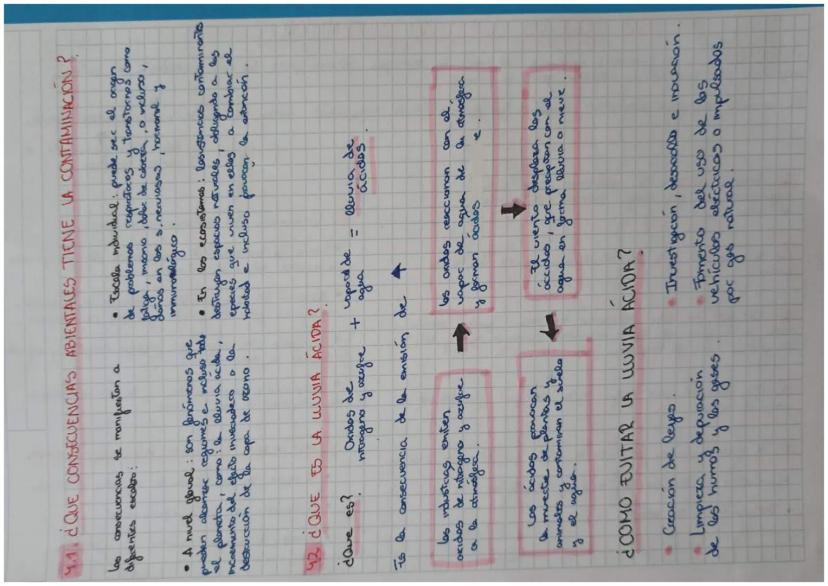 4.1. ¿QUE CONSECUENCIAS ABIENTALES TIENE LA CONTAMINACIÓN?
Las consecuencias se manifiestan a
diferentes escalas:
• A nivel global: son fenómenos que
pueden alcanzar regiones e incluso todo
el planeta, como: la lluvia ácida,
incremento del efecto invernadero o la
destrucción de la capa de ozono.
• Escala individual: puede ser el origen
de problemas respiratorios y transtornos como
fatiga, insomnio, dolor de cabeza, o incluso,
daños en los s. nerviosos, hormonal y
inmunológico.
• En los ecosistemas: las sustancias contaminantes
destruyen espacios naturales, obligando a las
especies que viven en ellos a cambiar el
hábitat e incluso provocan la extinción.
4.2 ¿QUE ES LA LLUVIA ÁCIDA?
¿Que es? Oxidos de nitrogeno y azufre + vapor de agua = lluvia de ácidos.
Es la consecuencia de la emisión de ↑
Las industrias emiten
oxidos de nitrogeno y azufre
a la atmósfera.
Los oxidos reaccionan con el
vapor de agua de la atmosfera
y forman ácidos e.
El viento desplaza los
ácidos, que precipitan con el
agua en forma lluvia o nieve.
Los ácidos provocan
la muerte de plantas y
animales y contaminan el suelo
y el agua.
¿COMO EVITAR LA LLUVIA ÁCIDA?
• Creación de leyes.
• Limpieza y depuración
de los humos y los gases.
• Investigación, desarrollo e inovación.
• Fomento del uso de los
vehículos eléctricos o impulsados
por gas natural.